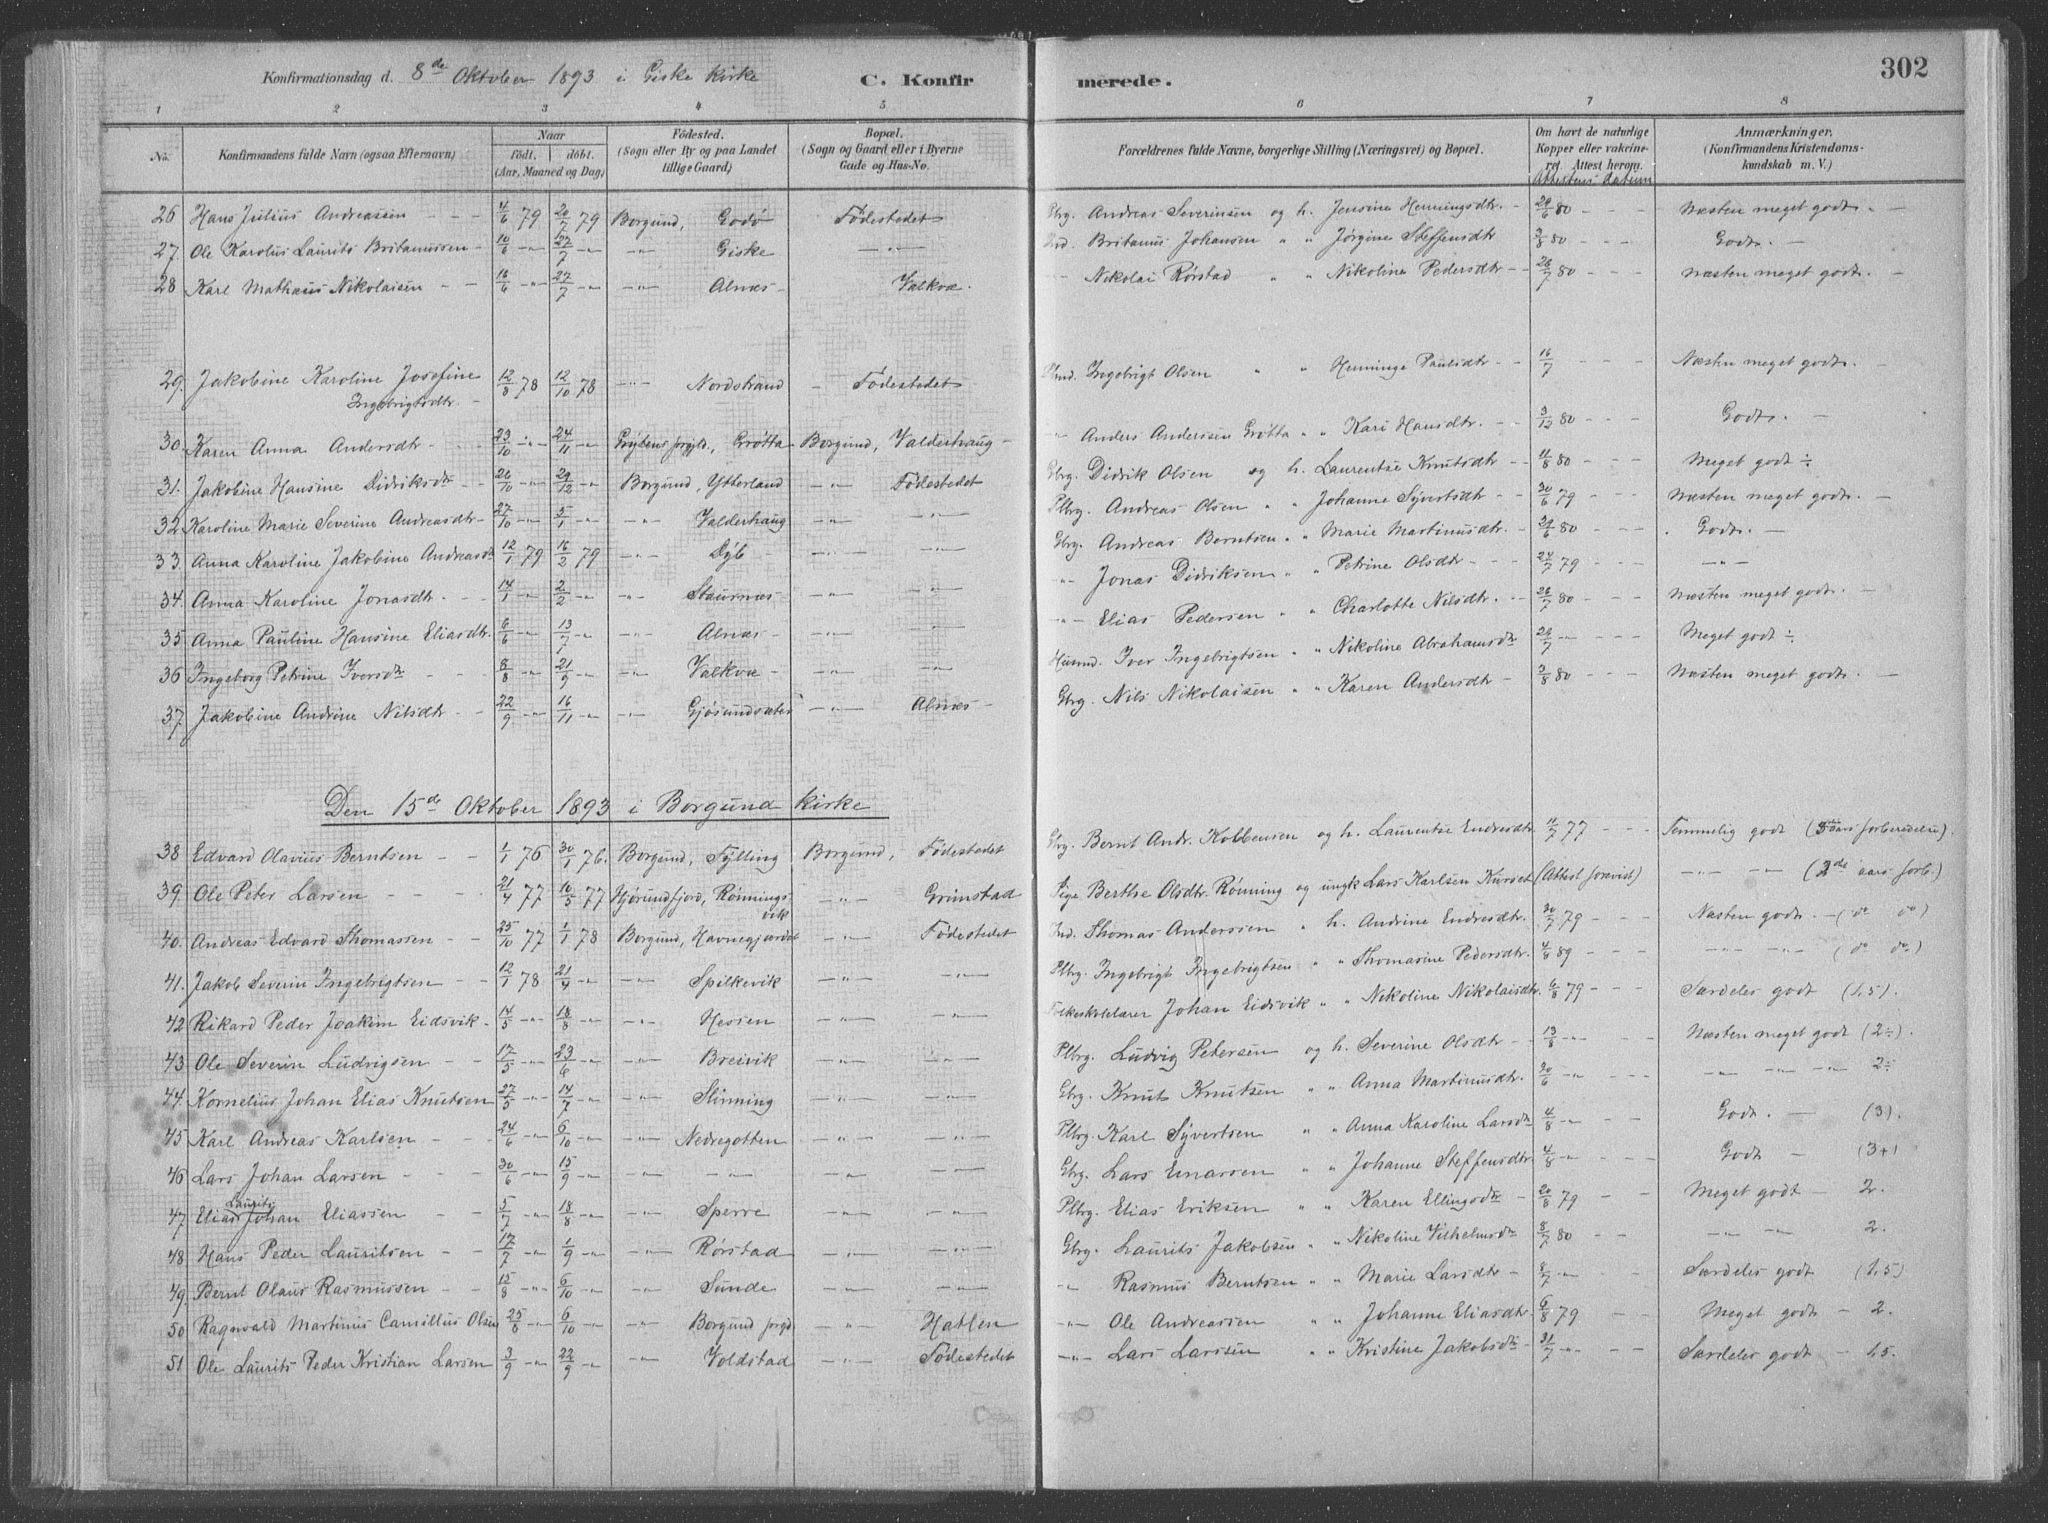 302
Konfirmationsdag d. 8de Oktober 1893 i Giske kirke C. Konfirmerede.
1 2 3 4 5 6 7 8
No. Konfirmandens fulde Navn (ogsaa Efternavn) Naar født. døbt. (Aar, Maaned og Dag) Fødested. (Sogn eller By og paa Landet tillige Gaard) Bopæl. (Sogn og Gaard eller i Byerne Gade og Hus-No. Forældrenes fulde Navne, borgerlige Stilling (Næringsvei) og Bopæl. Om havt de naturlige Kopper eller vakcineret. Attest herom. Attestens datum Anmærkninger. (Konfirmandens Kristendomskundskab m. V.)
26 Hans Julius Andreassen - - - 4/6 79 20/7 79 Borgund, Godø Fødestedet Gbrg. Andreas Severinsen og h. Jensine Henningsdtr. - 29/6 80 - - - Næsten meget godt. -
27. Ole Karolus Laurits Britanussen - 10/6 -"- 27/7 -"- -"- Giske -"- Ind. Britanus Johansen " " Jørgine Steffensdtr 3/8 80 - - - Godt. -
28 Karl Mathæus Nikolaisen - - 16/6 -"- 27/7 -"- -"- Alnæs - Valkvæ. -"- Nikolai Rørstad " " Nikoline Pedersdtr - - 26/7 80 - - - Næsten meget godt. -
29. Jakobine Karoline Josefine Ingebrigtsdtr. - 12/8 78 12/10 78 -"- Nordstrand - Fødestedet Plnd. Ingebrigt Olsen " " Henninge Paulsdtr - - 16/7 - - - Næsten meget godt. -
30. Karen Anna Andersdtr - - - 23/10 -"- 24/11 -"- Grytens prgjld., Grøtta Borgund, Valderhaug - " Anders Anderssen Grøtta " " Kari Hansdtr. - - 3/12 80 - - - Godt. -
31. Jakobine Hansine Didriksdtr 26/10 -"- 29/12 -"- Borgund, Ytterland -"- Fødestedet Gbrg. Didrik Olsen og h. Laurentse Knutsdtr - - 11/8 80 - - - Meget godt ÷
32. Karoline Marie Severine Andreasdtr - 27/10 -"- 5/1 -"- -"- Valderhaug -"- -"- Plbrg. Andreas Olsen " " Johanne Syvertsdtr - 30/6 79 - - - Næsten meget godt. -
33. Anna Karoline Jakobine Andreasdtr 12/1 79 16/2 79 -"- Dyb -"- -"- Gbrg. Andreas Berntsen " " Marie Martinusdtr. - 29/6 80 - - - Godt. -
34. Anna Karoline Jonasdtr. - - 14/1 -"- 2/2 -"- -"- Staurnæs - -"- -"- -"- Jonas Didriksen " " Petrine Olsdtr - - - 24/7 79 - - - -"-
35. Anna Pauline Hansine Eliasdtr. 6/6 -"- 13/7 -"- -"- Alnæs - -"- -"- -"- Elias Pedersen " " Charlotte Nilsdtr. - - 26/7 80 - - - Næsten meget godt. -
36 Ingeborg Petrine Iversdtr - - - 8/8 -"- 21/9 -"- -"- Valkvæ - -"- -"- Husmd. Iver Ingebrigtsen " " Nikoline Abrahamsdtr 29/7 -"- - - - Meget godt ÷
37. Jakobine Andrine Nilsdtr - - 22/9 -"- 16/11 -"- -"- Gjøsundsæter -"- Alnæs - Gbrg. Nils Nikolaisen " " Karen Andersdtr - 3/8 80 - - - Næsten meget godt. -
Den 15de Oktober 1893 i Borgund kirke
38 Edvard Olavius Berntsen - - 1/1 76 30/1 76. Borgund, Fylling Borgund, Fødestedet Gbrg. Bernt Andr. Kobbensen og h. Laurentse Endresdtr. 11/7 77 - - Temmelig godt
39. Ole Peter Larsen - - - 21/4 77 16/5 77 Hjørundfjord, Rønningsvik -"- Grimstad Pige Berthe Olsdtr. Rønning og ungk Lars Karlsen Kurset (Attest forevist) -"- -"- (2de aars forb.)
40. Andreas Edvard Thomassen - - 25/10 77 1/1 78 Borgund, Havnegjærdet -"- Fødestedet Ind. Thomas Anderssen " h. Andrine Endresdtr. 30/7 79 - - - Næsten godt. - (do do)
41. Jakob Severin Ingebrigtsen - - 12/1 78 21/4 -"- -"- Spilkevik -"- -"- Plbrg. Ingebrigt Ingebrigtsen " " Thomasine Pedersdtr. 4/4 89 - - - -"- -"- (do do)
42 Rikard Peder Joakim Eidsvik - 14/5 -"- 18/8 -"- -"- Hessen -"- -"- Folkeskolelærer Johan Eidsvik " " Nikoline Nikolaisdtr. 6/8 79 - - - Særdeles godt (1,5).
43 Ole Severin Ludvigsen - - 17/5 -"- 23/6 -"- -"- Breivik -"- -"- Plbrg. Ludvig Petersen og h. Severine Olsdtr - - 13/8 -"- - - - Næsten meget godt (2÷).
44. Kornelius Johan Elias Knutsen 27/5 -"- 14/7 -"- -"- Slinning -"- -"- Gbrg. Knut Knutsen " " Anna Martinusdtr. 30/6 -"- - - - -"- -"- -"- 2÷
45 Karl Andreas Karlsen - - - 24/6 -"- 6/10 -"- -"- Nedregotten -"- -"- Plbrg. Karl Syvertsen " " Anna Karoline Larsdtr 4/8 -"- - - Godt. - (3).
46 Lars Johan Larsen - - - 30/6 -"- 15/9 -"- -"- -"- -"- -"- Gbrg. Lars Einarsen " " Johanne Steffensdtr. 4/8 -"- - - Godt - (3+)
47. Elias Laurits Johan Eliassen - - 5/7 -"- 18/8 -"- -"- Sperre -"- -"- Plbrg. Elias Eriksen " " Karen Ellingsdtr - 20/8 79 - - Meget godt - 2.
48 Hans Peder Lauritsen - - 17/7 -"- 1/9 -"- -"- Rørstad -"- -"- Gbrg. Laurits Jakobsen " " Nikoline Vilhelmsdtr. 8/7 80 -"- -"- 2.
49. Bernt Olaus Rasmussen - - 15/8 -"- 6/10 -"- -"- Sunde -"- -"- " Rasmus Berntsen " " Marie Larsdtr - 8/7 -"- - - Særdeles godt (1,5)
50 Ragnvald Martinus Camillus Olsen 25/8 -"- 6/10 -"- -"- Borgund prgd -"- Hatlen -"- Ole Andreassen " " Johanne Eliasdtr. 6/8 79 - - Meget godt - 2.
51 Ole Laurits Peder Kristian Larsen 3/9 -"- 22/9 -"- -"- Voldstad -"- Fødestedet -"- Lars Larssen " " Kristine Jakobsdtr 31/7 -"- - - Særdeles godt - 1,5.